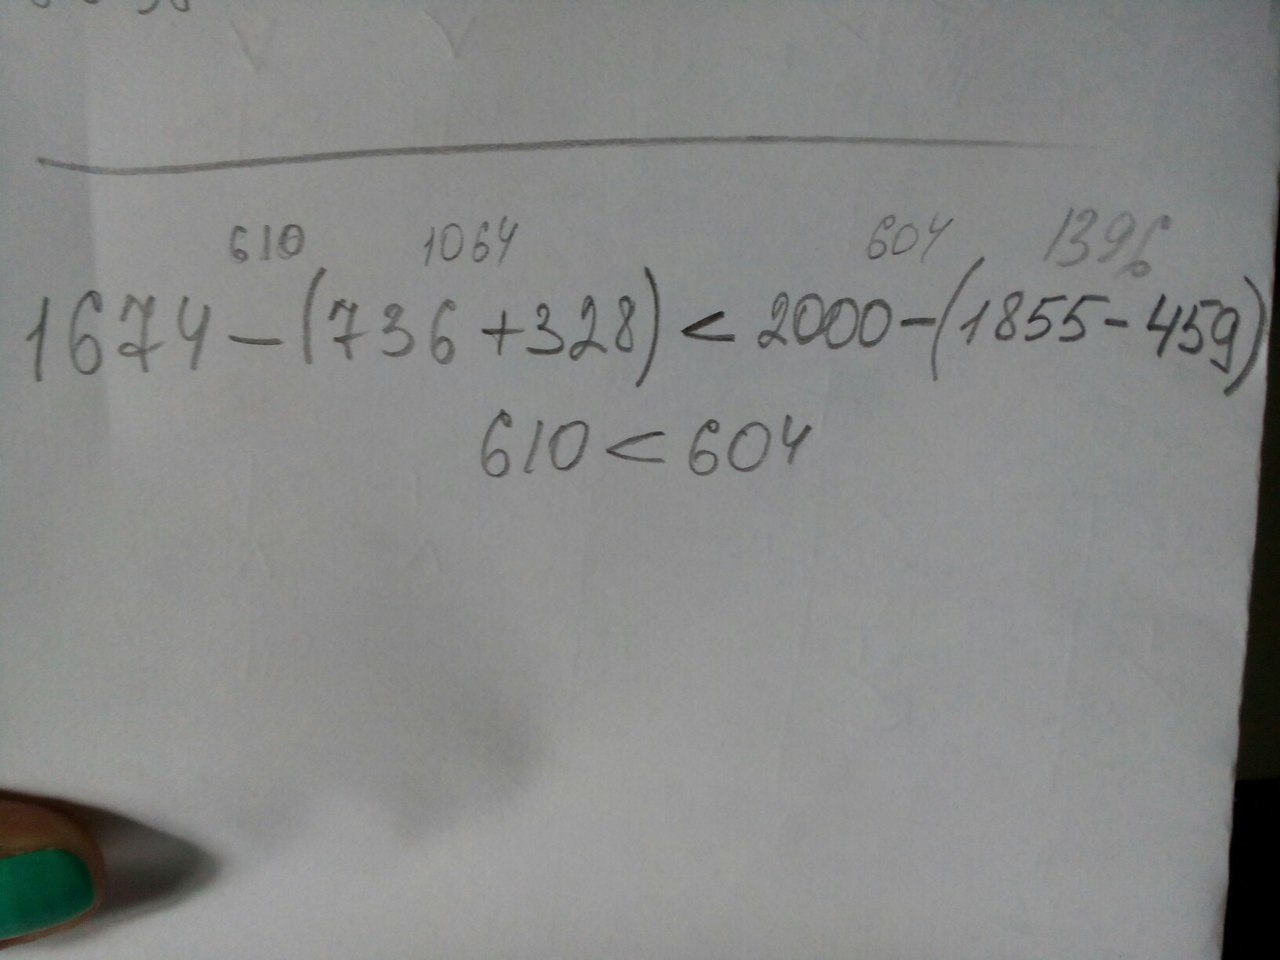 610 1064 604 1396
1674-(736+328)<2000-(1855-459)
610<604